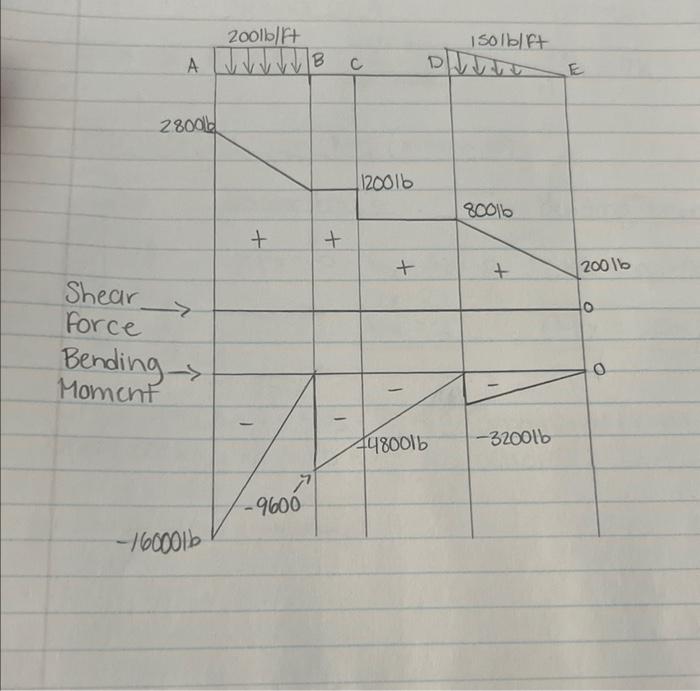 200lb/ft
150lb/ft
A
B
C
D
E
2800lb
1200lb
800lb
+
+
+
+
200lb
Shear
Force
0
Bending
Moment
0
-
-
-
-
-4800lb
-3200lb
-9600
-16000lb